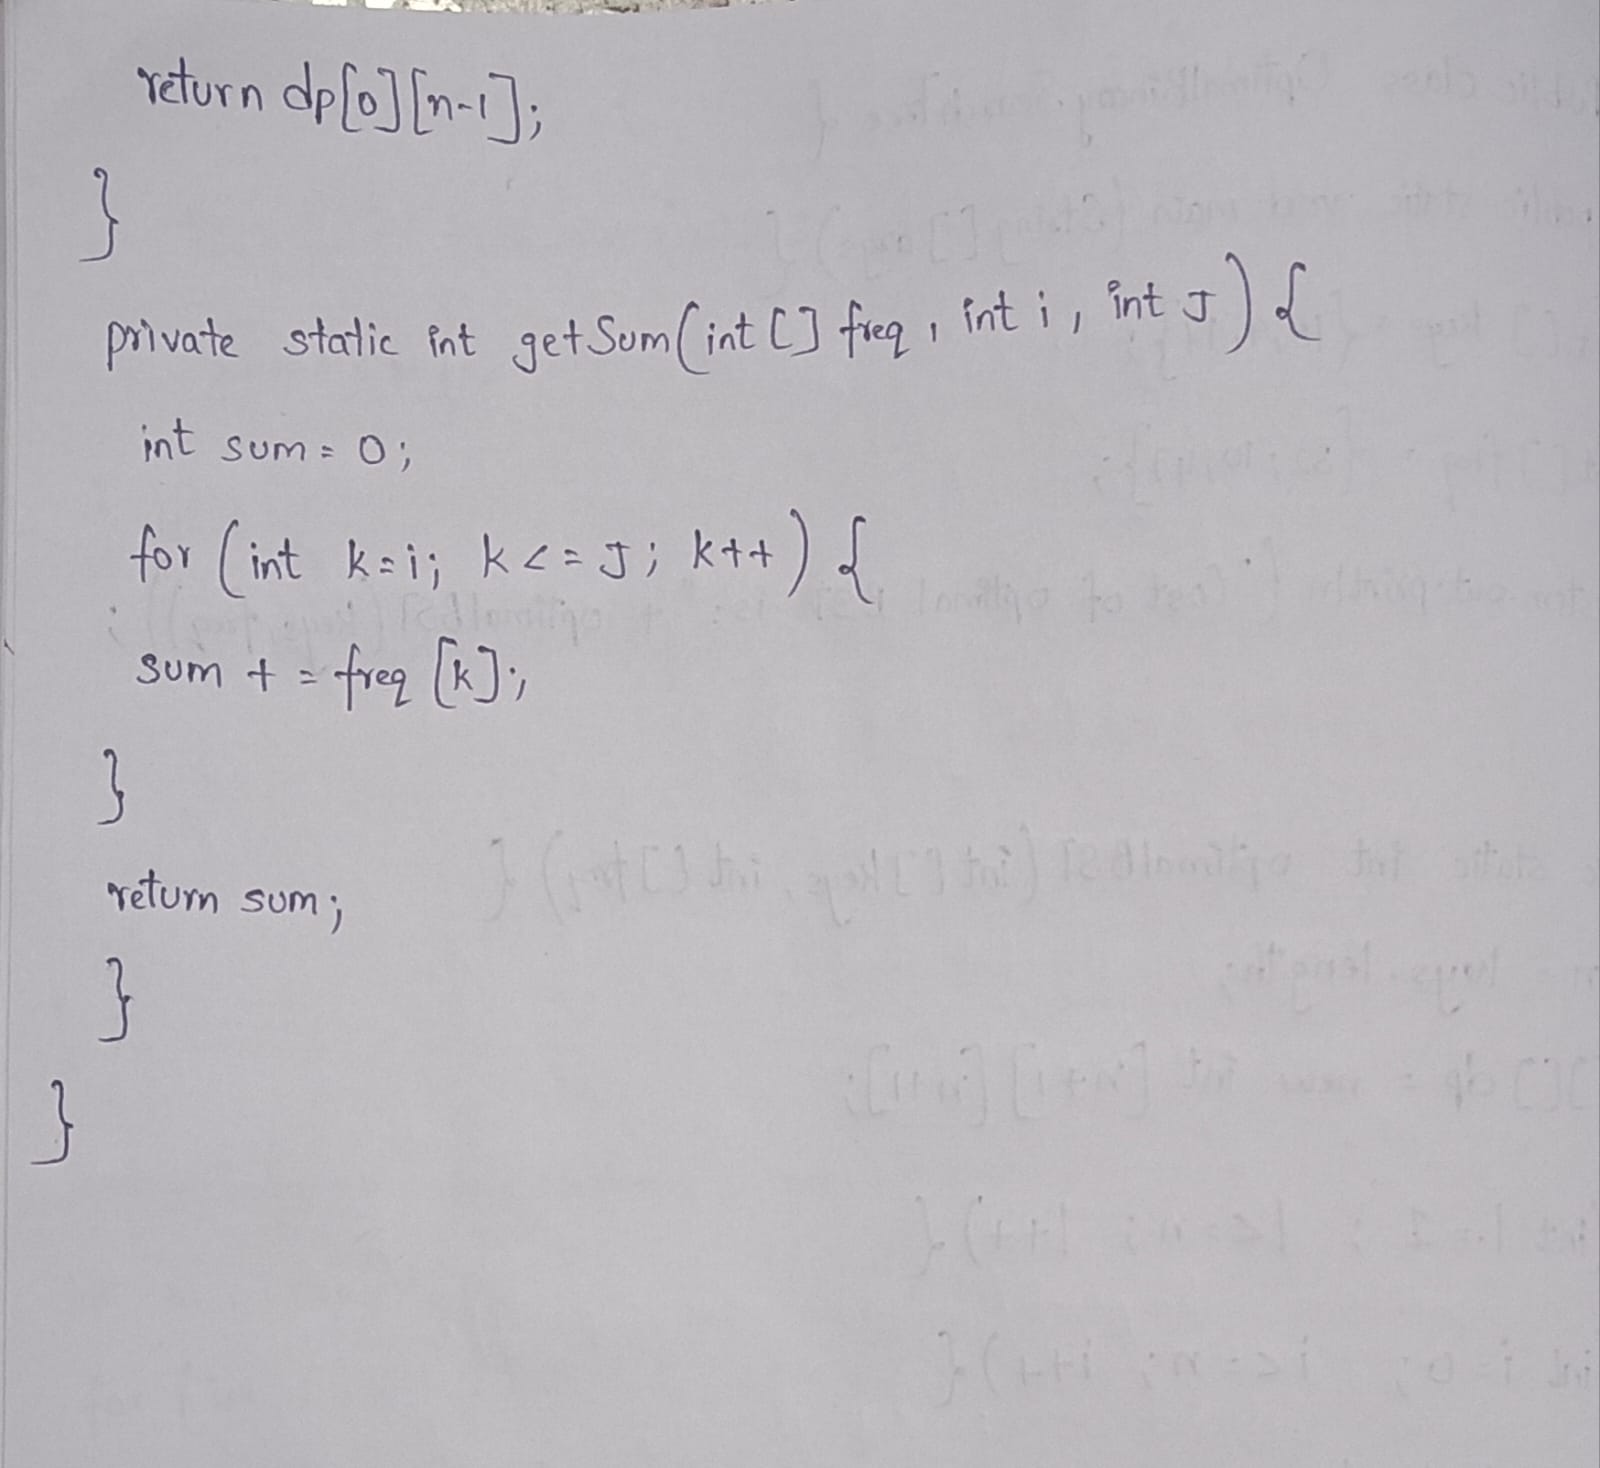 return dp[0][n-1];
}
private static int getSum(int [] freq, int i, int J) {
int sum = 0;
for (int k=i; k<=J; k++) {
sum += freq [k];
}
return sum;
}
}